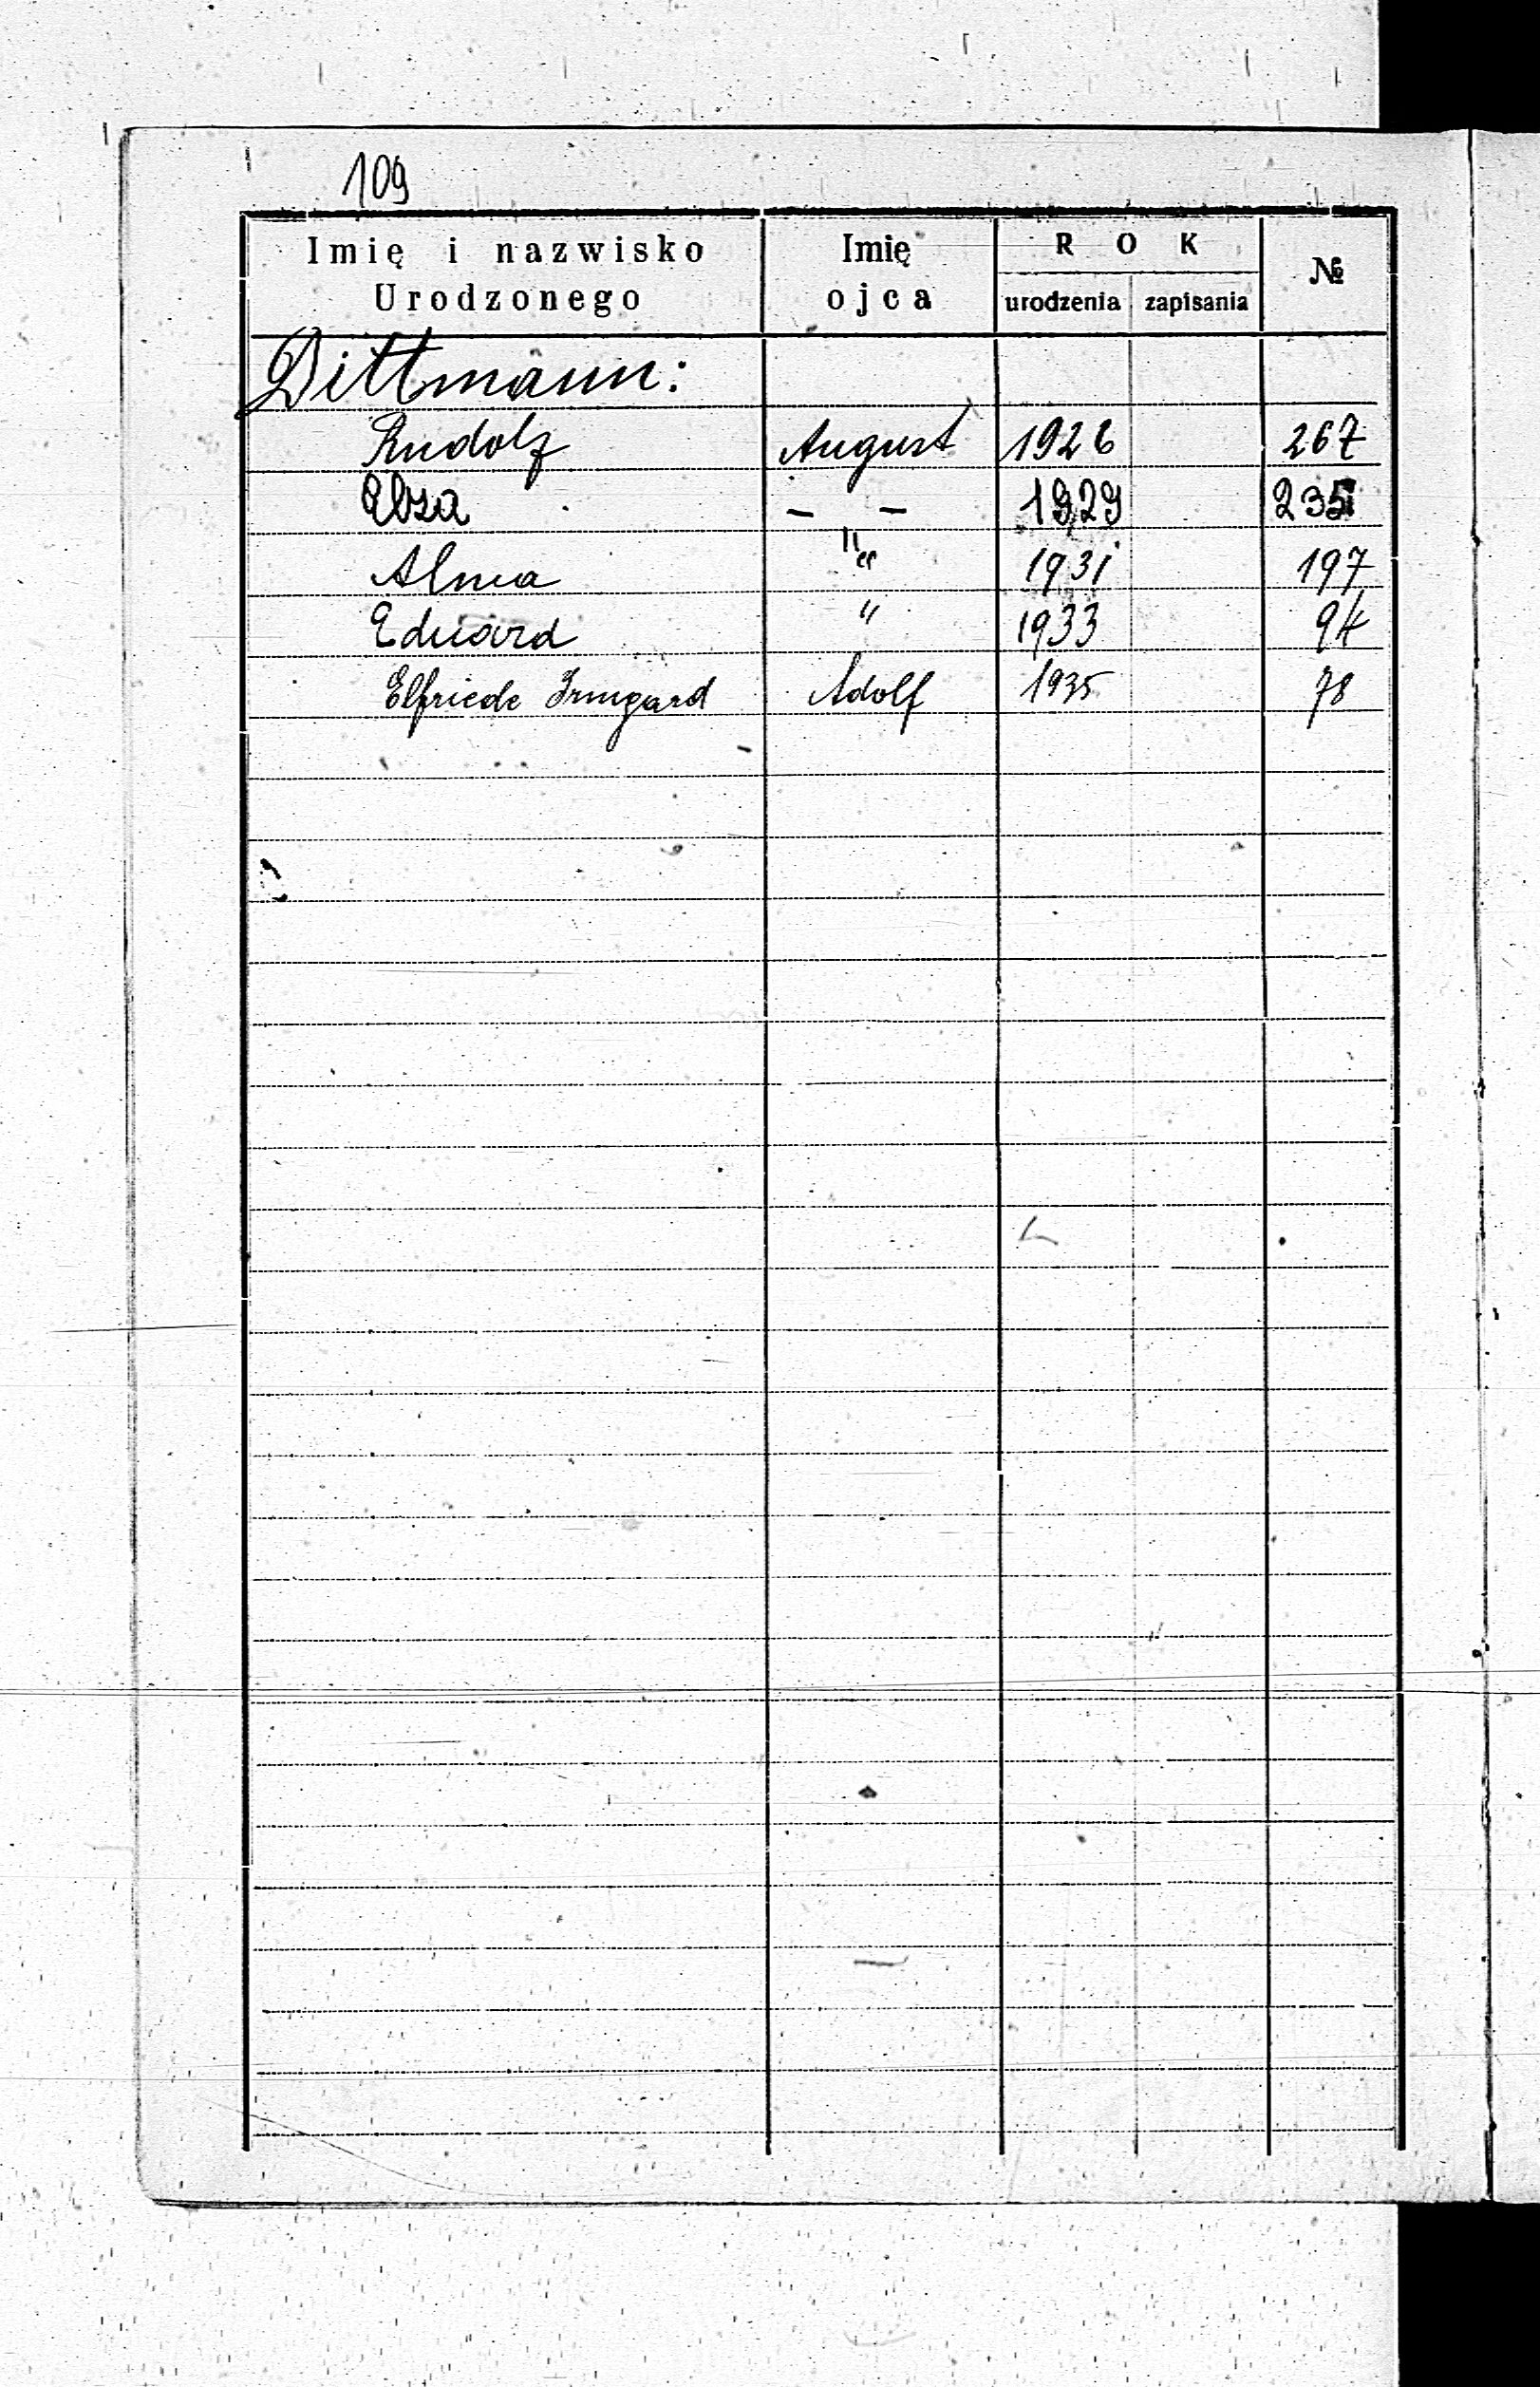 109
Imię i nazwisko Urodzonego | Imię ojca | ROK urodzenia | zapisania | №
Dittmann:
Rudolf | August | 1926 | 267
Elza | — " — | 1929 | 235
Alma | " | 1931 | 197
Eduard | " | 1933 | 94
Elfriede Irmgard | Adolf | 1935 | 78